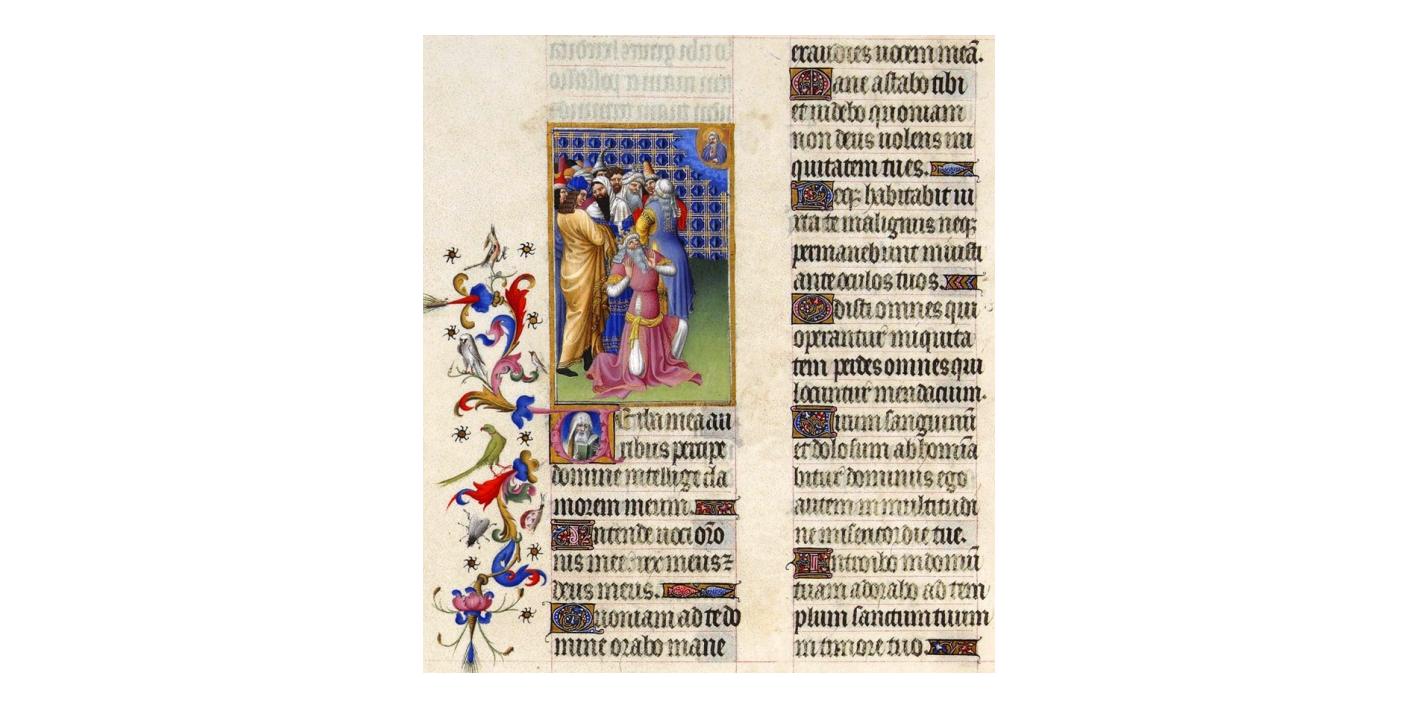 Verba mea au
ribus percipe
domine intellige cla
morem meum.
Intende uoci orõ
nis mee rex meus ⁊
deus meus.
Quoniam ad te do
mine orabo mane
exaudies uocem meã.
Mane astabo tibi
et uidebo quoniam
non deus uolens ini
quitatem tu es.
Neqꝫ habitabit iu
xta te malignus neqꝫ
permanebunt iniusti
ante oculos tuos.
Odisti omnes qui
operantur iniquita
tem perdes omnes qui
locuntur mendacium.
Uirum sanguinũ
et dolosum abhomĩa
bitur dominus ego
autem in multitudi
ne misericordie tue.
Introibo in domũ
tuam adorabo ad tem
plum sanctum tuum
in timore tuo.